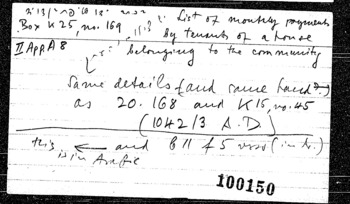 List of monthly payments
Box K 25, no. 169 by tenants of a house
II App A 8 belonging to the community
Same details (and same hand?)
as 20.168 and K15, no. 45
(1042/3 A.D.)
this is in Arabic ← and B 11 f 5 verso
100150